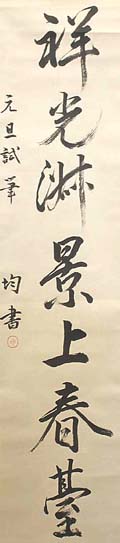 祥光淋景上春臺
元旦試筆
均書